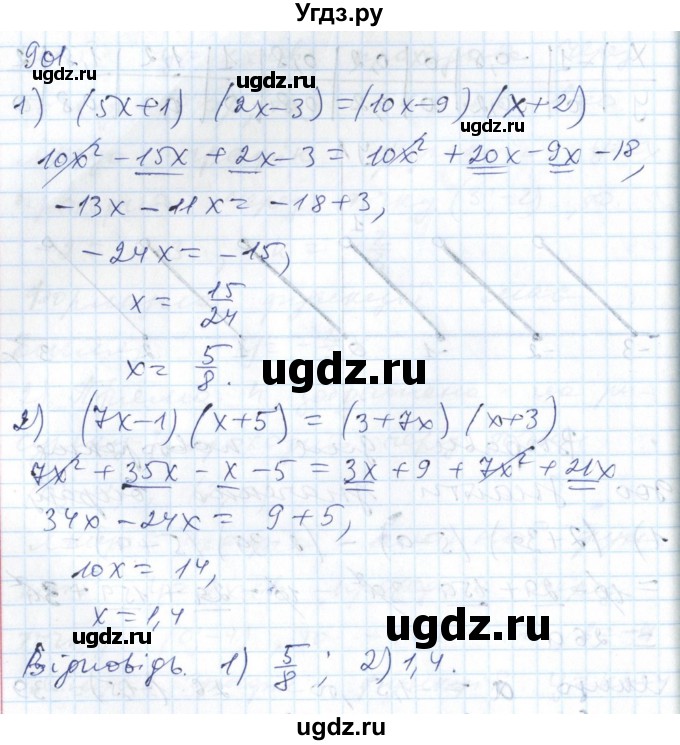 Угдз.ру
901.
ugdz.ru
ugdz.ru
1) (5x+1) (2x-3) = (10x-9) (x+2)
ugdz.ru
10x² - 15x + 2x - 3 = 10x² + 20x - 9x - 18,
-13x - 11x = -18 + 3,
-24x = -15,
x = 15/24
ugdz.ru
x = 5/8.
ugdz.ru
2) (7x-1) (x+5) = (3+7x) (x+3)
7x² + 35x - x - 5 = 3x + 9 + 7x² + 21x
34x - 24x = 9 + 5,
ugdz.ru
10x = 14,
x = 1,4
ugdz.ru
ugdz.ru
Відповідь. 1) 5/8 ; 2) 1,4.
ugdz.ru
ugdz.ru